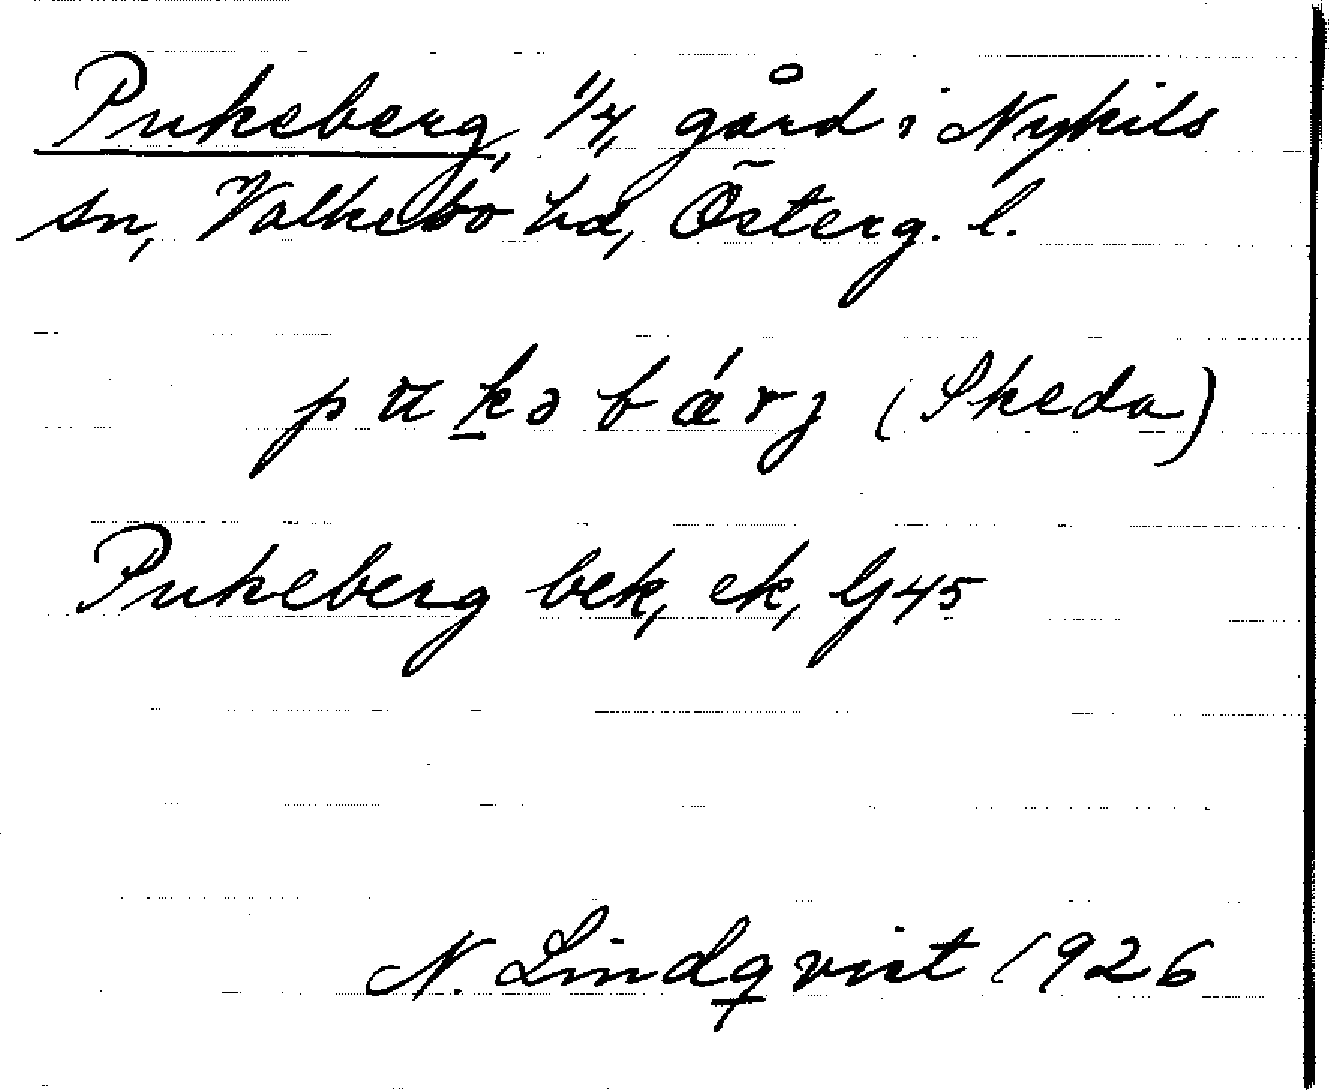 Pukeberg, 1/4, gård i Nykils
sn, Valkebo hd, Österg. l.
pʉkəbǽrj (Skeda)
Pukeberg bek, ek, Gj45
N. Lindqvist 1926